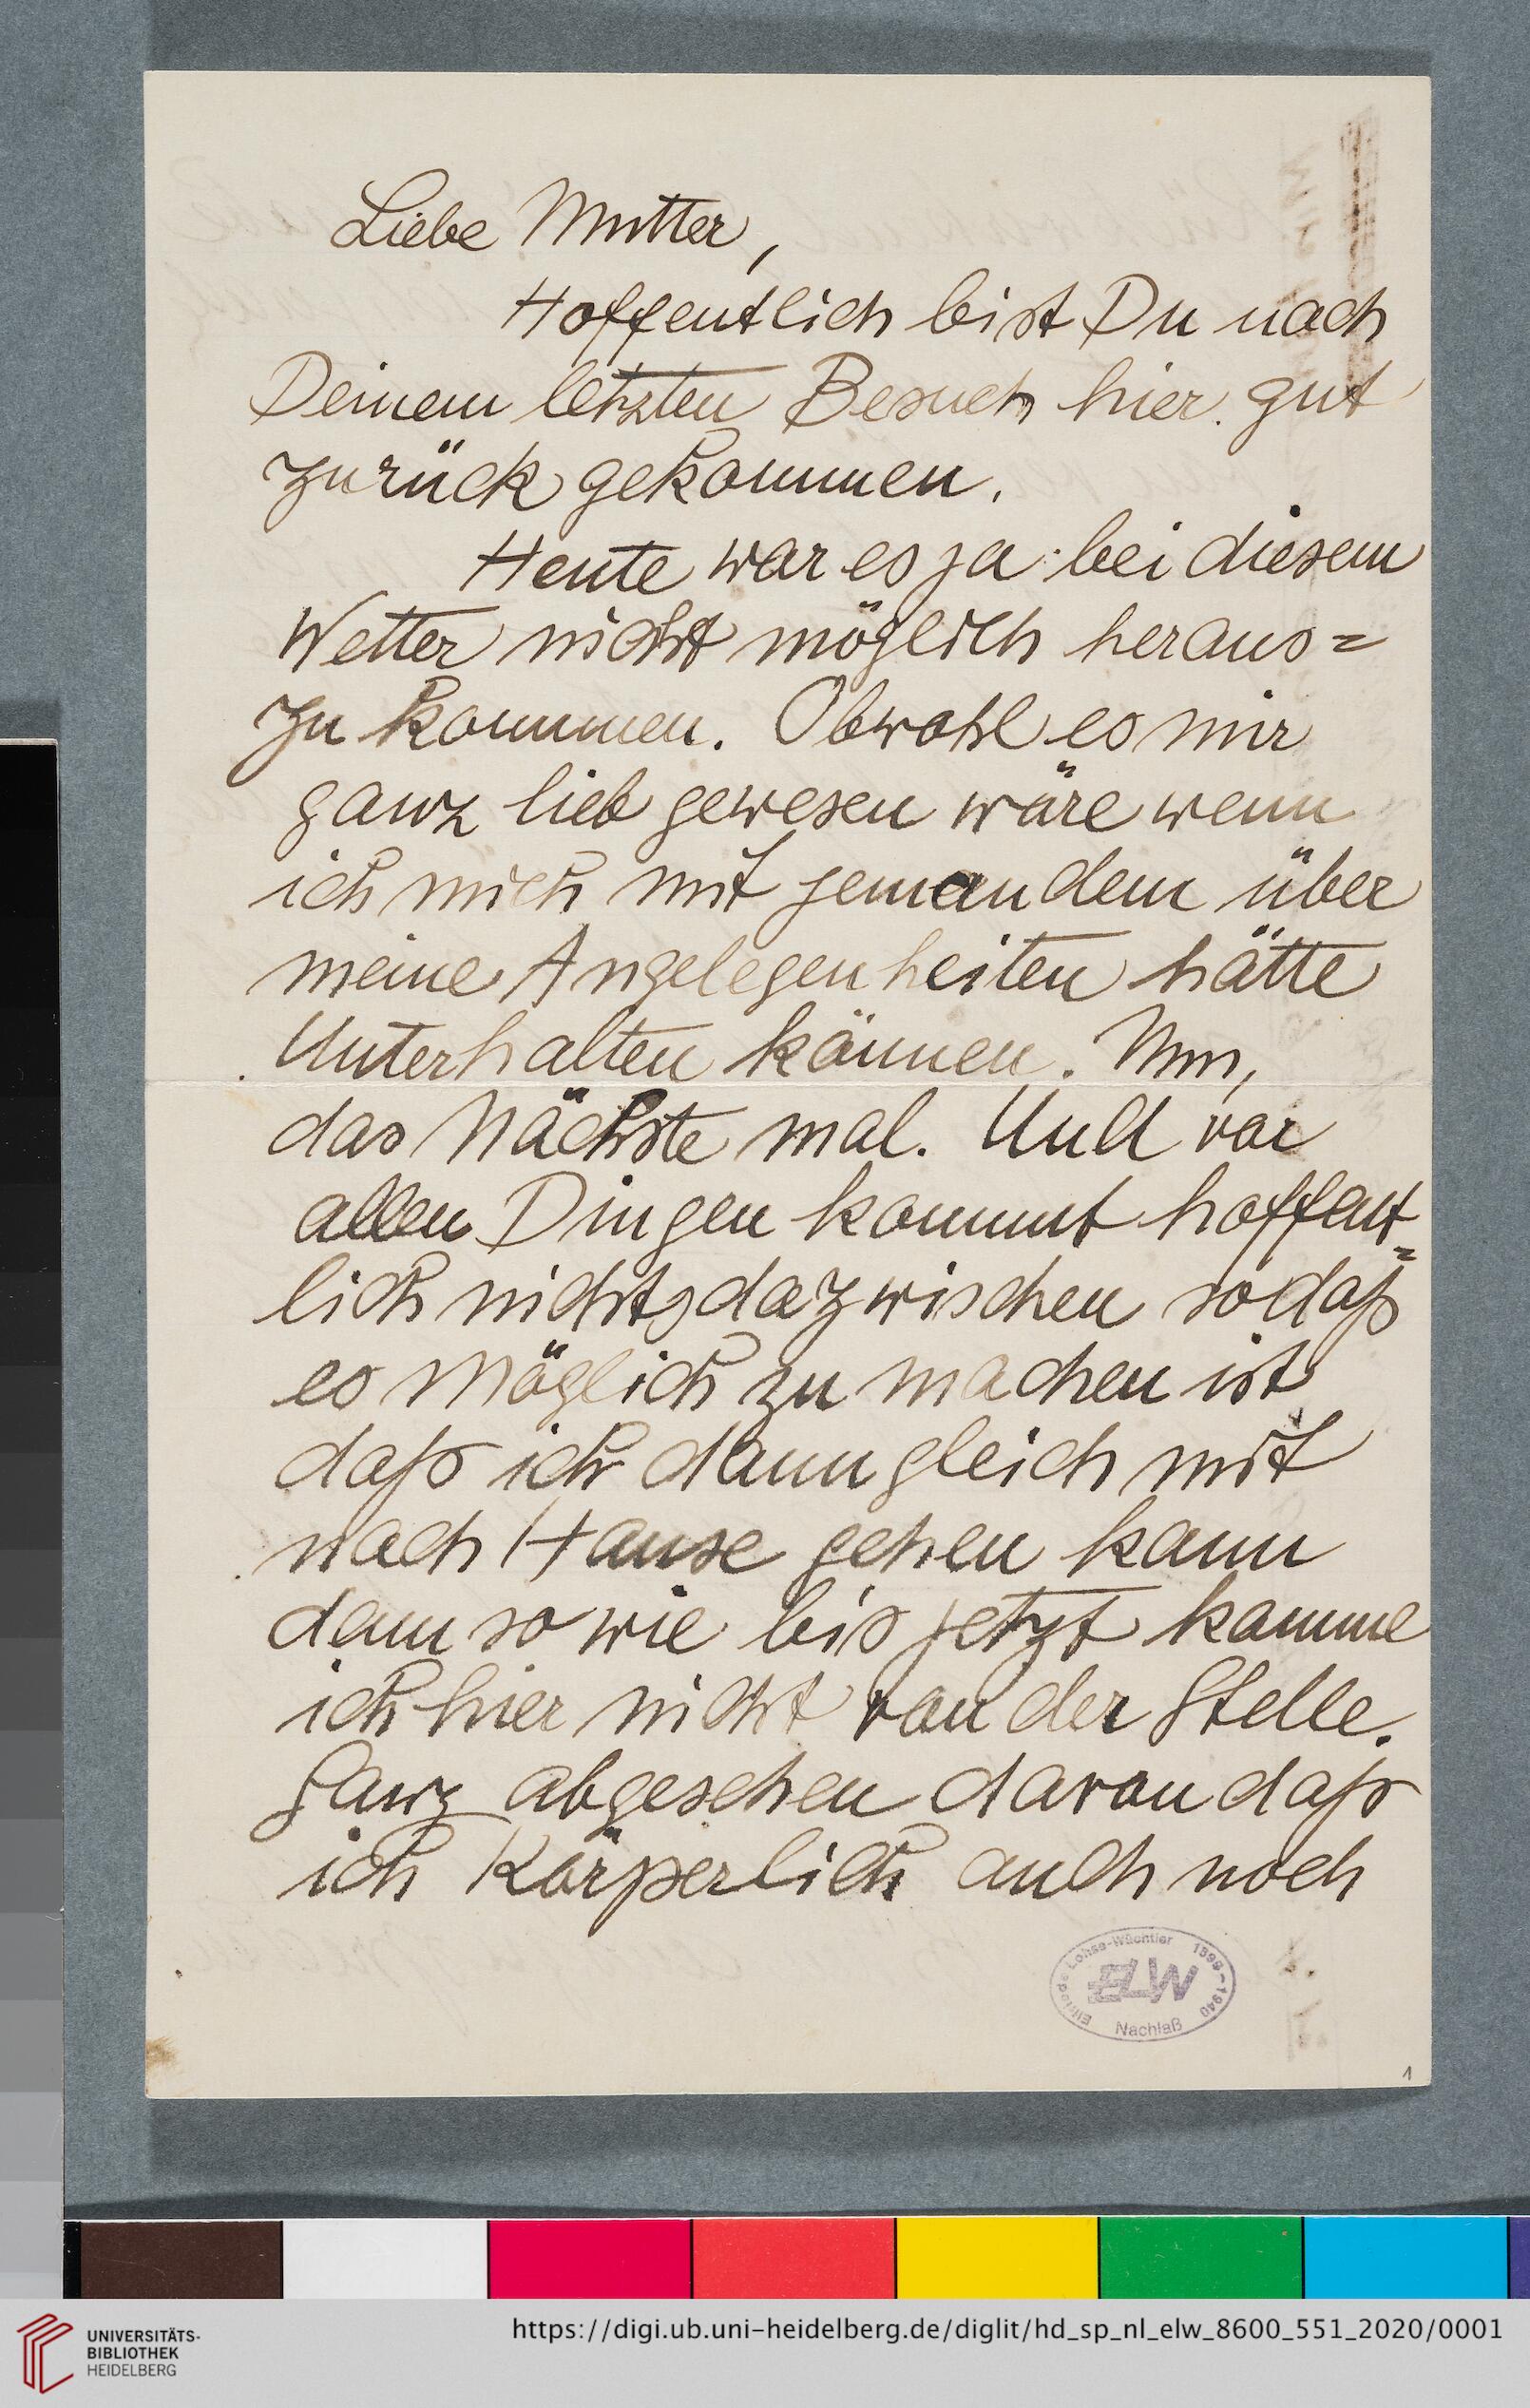 Liebe Mutter,
Hoffentlich bist Du nach
Deinem letzten Besuch hier gut
zurück gekommen.
Heute war es ja bei diesem
Wetter nicht möglich heraus=
zu kommen. Obwohl es mir
ganz lieb gewesen wäre wenn
ich mich mit jemandem über
meine Angelegenheiten hätte
Unterhalten können. Nun,
das Nächste mal. Und vor
allen Dingen kommt hoffent=
lich nichts dazwischen sodaß
es möglich zu machen ist
daß ich dann gleich mit
nach Hause gehen kann
denn so wie bis jetzt komme
ich hier nicht von der Stelle.
Ganz abgesehen davon daß
ich Körperlich auch noch
Elfriede Lohse-Wächtler 1899-1940
ELW
Nachlaß
1
UNIVERSITÄTS-
BIBLIOTHEK
HEIDELBERG
https://digi.ub.uni-heidelberg.de/diglit/hd_sp_nl_elw_8600_551_2020/0001